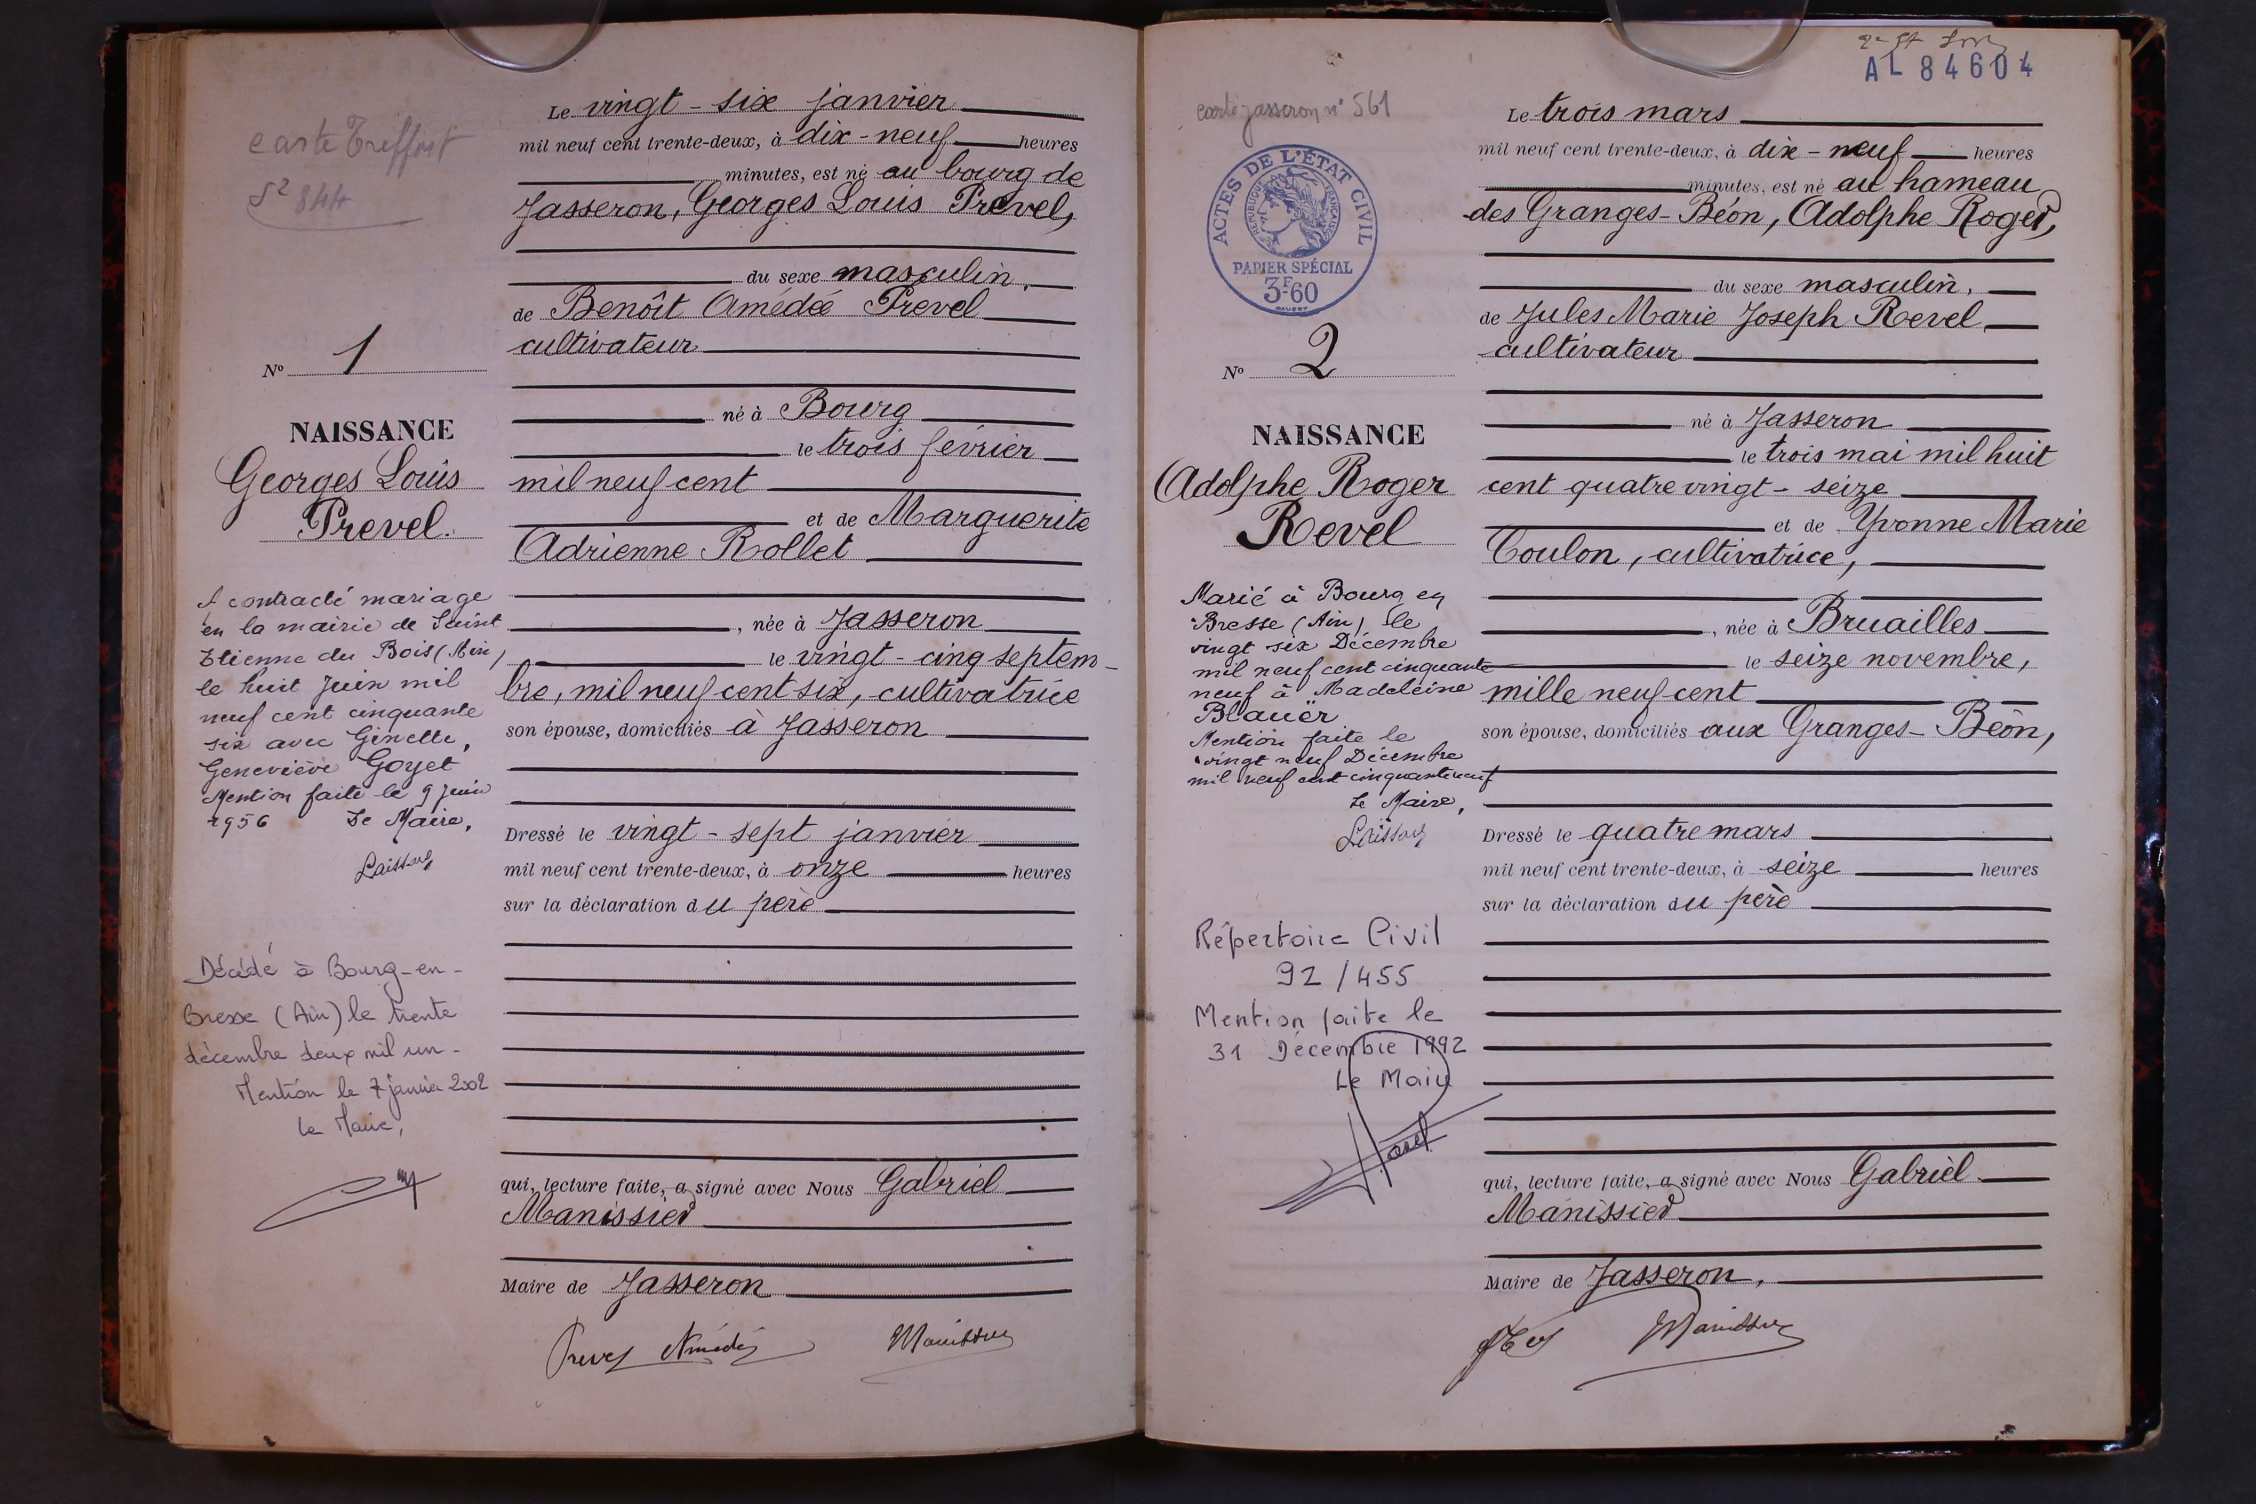 carte Treffort
844
Le vingt-six janvier
mil neuf cent trente-deux, à dix-neuf heures
minutes, est né au bourg de
Jasseron, Georges Louis Prevel,
du sexe masculin,
de Benoît Amédée Prevel
cultivateur
né à Bourg
le trois février
mil neuf cent
et de Marguerite
Adrienne Rollet
, née à Jasseron
le vingt-cinq septem-
bre, mil neuf cent six, cultivatrice
son épouse, domiciliés à Jasseron
Dressé le vingt-sept janvier
mil neuf cent trente-deux, à onze heures
sur la déclaration du père
qui, lecture faite, a signé avec Nous Gabriel
Manissier
Maire de Jasseron
Prevel Amédée Manissier
No 1
NAISSANCE
Georges Louis
Prevel.
A contracté mariage
en la mairie de Saint
Etienne du Bois (Ain)
le huit Juin mil
neuf cent cinquante
six avec Ginette,
Geneviève Goyet
Mention faite le 9 juin
1956 Le Maire,
Décédé à Bourg-en-
Bresse (Ain) le trente
décembre deux mil un-
Mention le 7 janvier 2002
Le Maire,
AL 84604
carte Jasseron n° 561
ACTES DE L'ÉTAT CIVIL
RÉPUBLIQUE FRANÇAISE
PAPIER SPÉCIAL
3F60
Le trois mars
mil neuf cent trente-deux, à dix-neuf heures
minutes, est né au hameau
des Granges-Béon, Adolphe Roger,
du sexe masculin,
de Jules Marie Joseph Revel
cultivateur
né à Jasseron
le trois mai mil huit
cent quatre vingt-seize
et de Yvonne Marie
Coulon, cultivatrice,
, née à Bruailles
le seize novembre,
mille neuf cent
son épouse, domiciliés aux Granges-Béon,
Dressé le quatre mars
mil neuf cent trente-deux, à seize heures
sur la déclaration du père
qui, lecture faite, a signé avec Nous Gabriel
Manissier
Maire de Jasseron,
Manissier
No 2
NAISSANCE
Adolphe Roger
Revel
Marié à Bourg en
Bresse (Ain) le
vingt six Décembre
mil neuf cent cinquante
neuf à Madeleine
Blauër
Mention faite le
vingt neuf Décembre
mil neuf cent cinquante neuf
Le Maire,
Répertoire Civil
92/455
Mention faite le
31 Décembre 1992
Le Maire